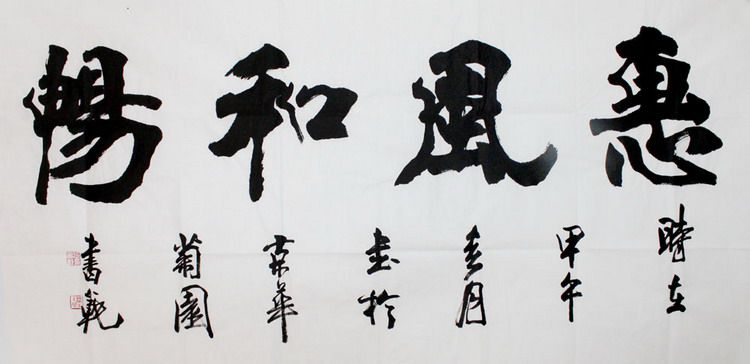 惠風和暢
時在
甲午
春月
書於
京華
菊園
書範